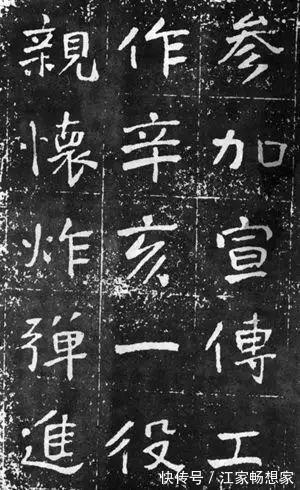 参加宣傳工
作辛亥一役
親懷炸弹進
快传号/江家畅想家